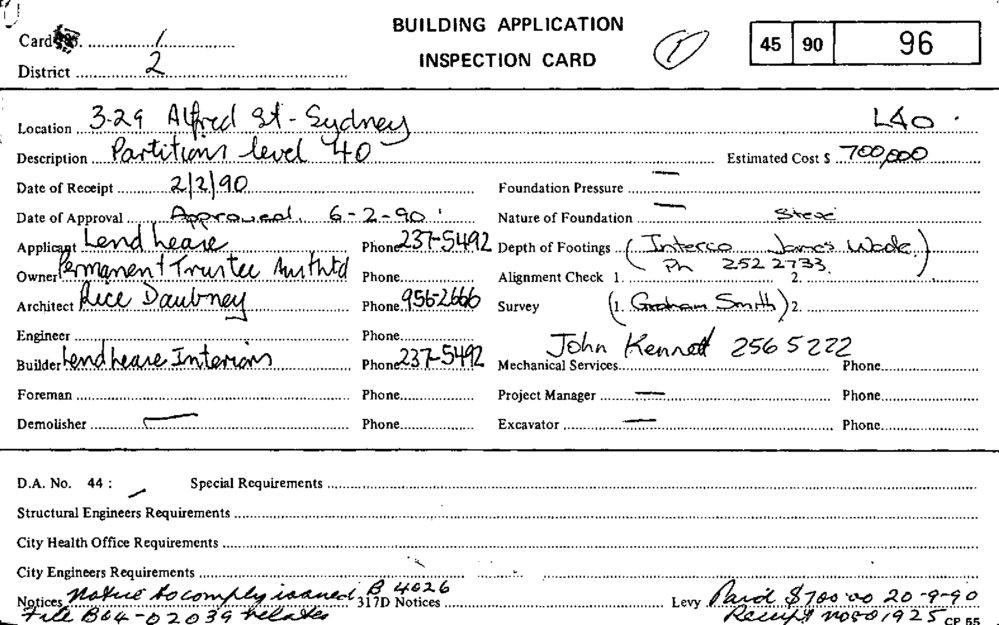 Card No. 1
BUILDING APPLICATION
INSPECTION CARD
45 90 96
District 2
Location 3-29 Alfred St - Sydney L40
Description Partitions level 40 Estimated Cost $ 700,000
Date of Receipt 2/2/90 Foundation Pressure —
Date of Approval Approved. 6-2-90 Nature of Foundation —
Applicant Lend Lease Phone 237-5492 Depth of Footings (Interco James Wade.)
Owner Permanent Trustee Phone Alignment Check 1. Ph 252 2733. 2.
Architect Rice Daubney Phone 956-2666 Survey (1. Graham Smith) 2.
Engineer Phone John Kennett 256 5222
Builder Lend Lease Interiors Phone 237-5492 Mechanical Services Phone
Foreman Phone Project Manager — Phone
Demolisher — Phone Excavator — Phone
D.A. No. 44 : Special Requirements
Structural Engineers Requirements
City Health Office Requirements
City Engineers Requirements
Notices Notice to comply issued B 4026 317D Notices Levy Paid $700-00 20-9-90
File B04-02039 relates Receipt no 501925 CP 55